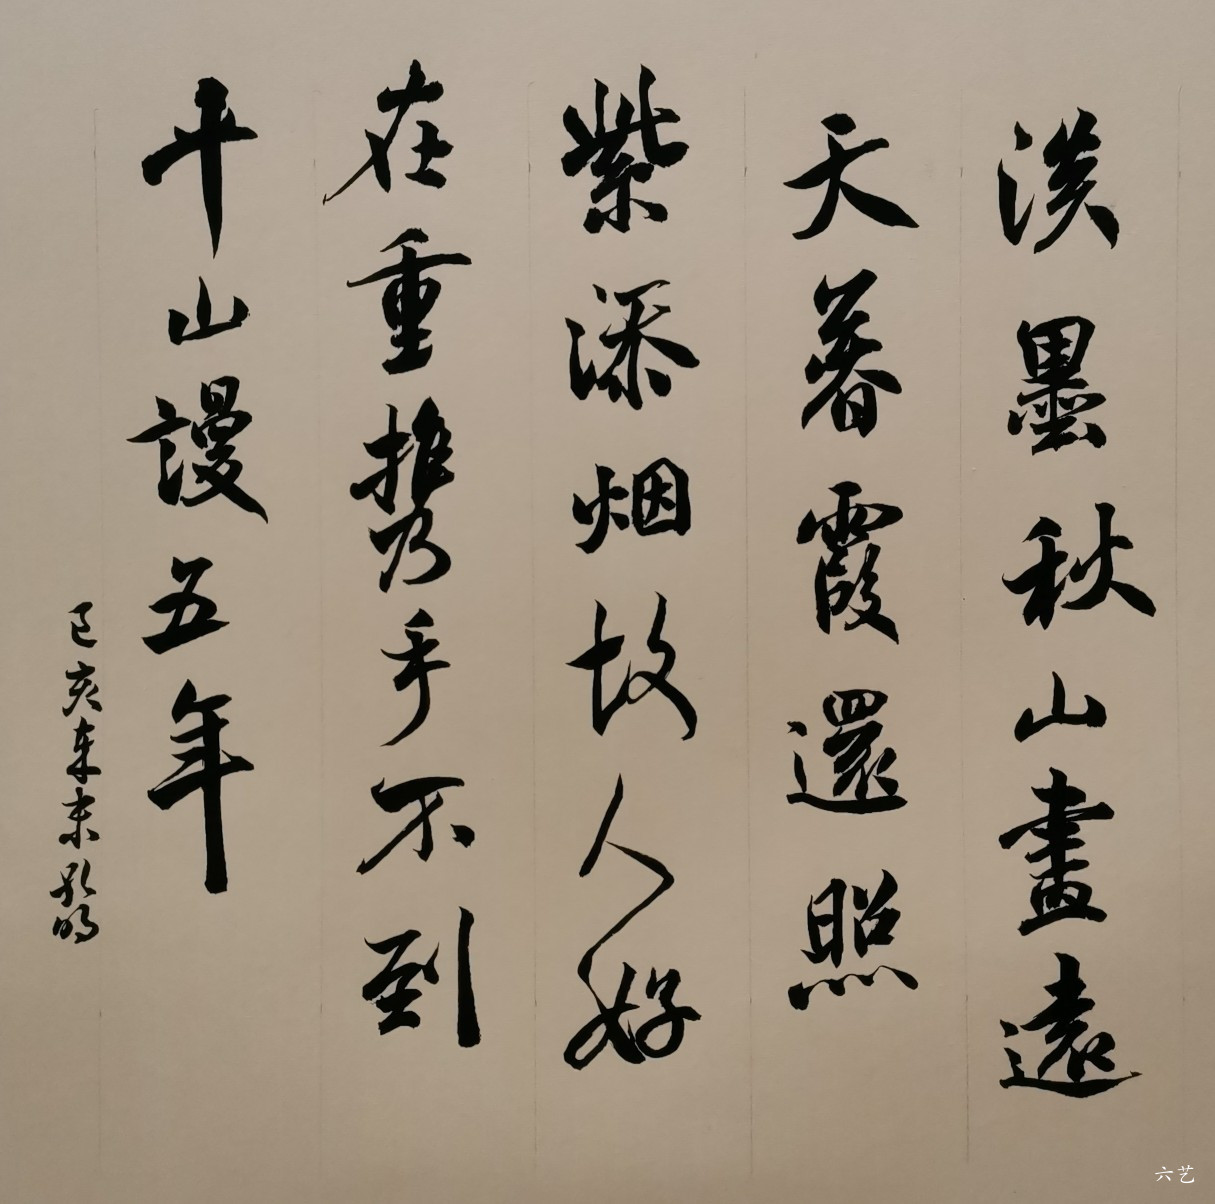 淡墨秋山畫遠
天暮霞還照
紫添烟故人好
在重携手不到
平山謾五年
己亥年末
六艺